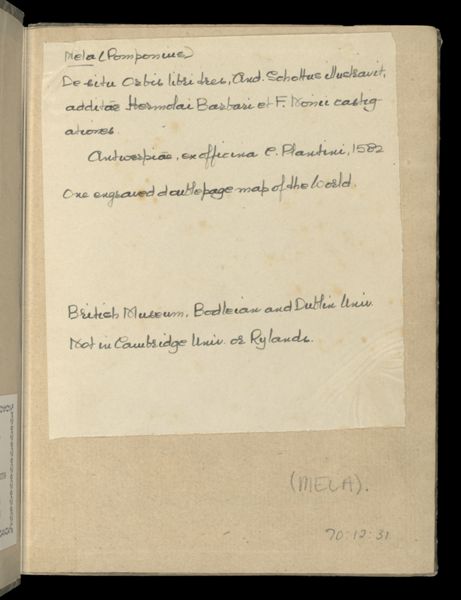 Mela (Pomponius)
De situ Orbis libri tres, And. Schottus illustravit,
additae Hermolai Barbari et F. Nonii castig-
ationes.
Antwerpiae, ex officina C. Plantini, 1582
One engraved double page map of the World.
British Museum, Bodleian and Dublin Univ.
Not in Cambridge Univ. or Rylands.
(MELA).
70:12:31